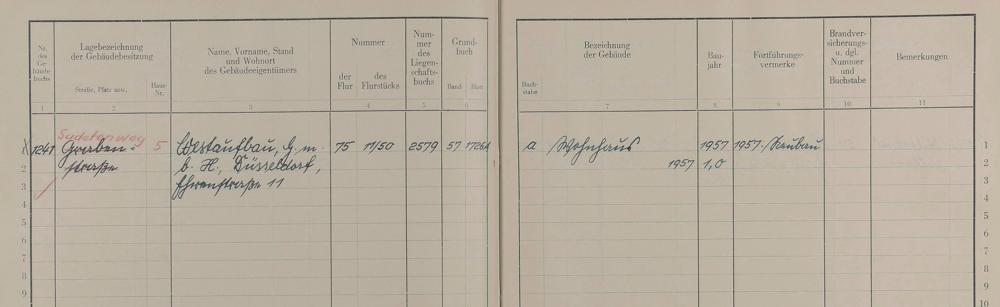 Nr. des Ge- bäude- buchs
Lagebezeichnung der Gebäudebesitzung
Straße, Platz usw.
Haus- Nr.
Name, Vorname, Stand und Wohnort des Gebäudeeigentümers
Nummer
der Flur
des Flurstücks
Num- mer des Liegen- schafts- buchs
Grund- buch
Band
Blatt
1 2 3 4 5 6
Sudetenweg
1241 Graben- 5 Westaufbau, G.m. 75 11/50 2579 57 1726A
straße b. H., Düsseldorf,
Ehrenstraße 11
2
3
4
5
6
7
8
9
Buch- stabe
Bezeichnung der Gebäude
Bau- jahr
Fortführungs- vermerke
Brandver- sicherungs- u. dgl. Nummer und Buchstabe
Bemerkungen
7 8 9 10 11
a Wohnhaus 1957 1957/Neubau 1
1957 1,0 2
3
4
5
6
7
8
9
10